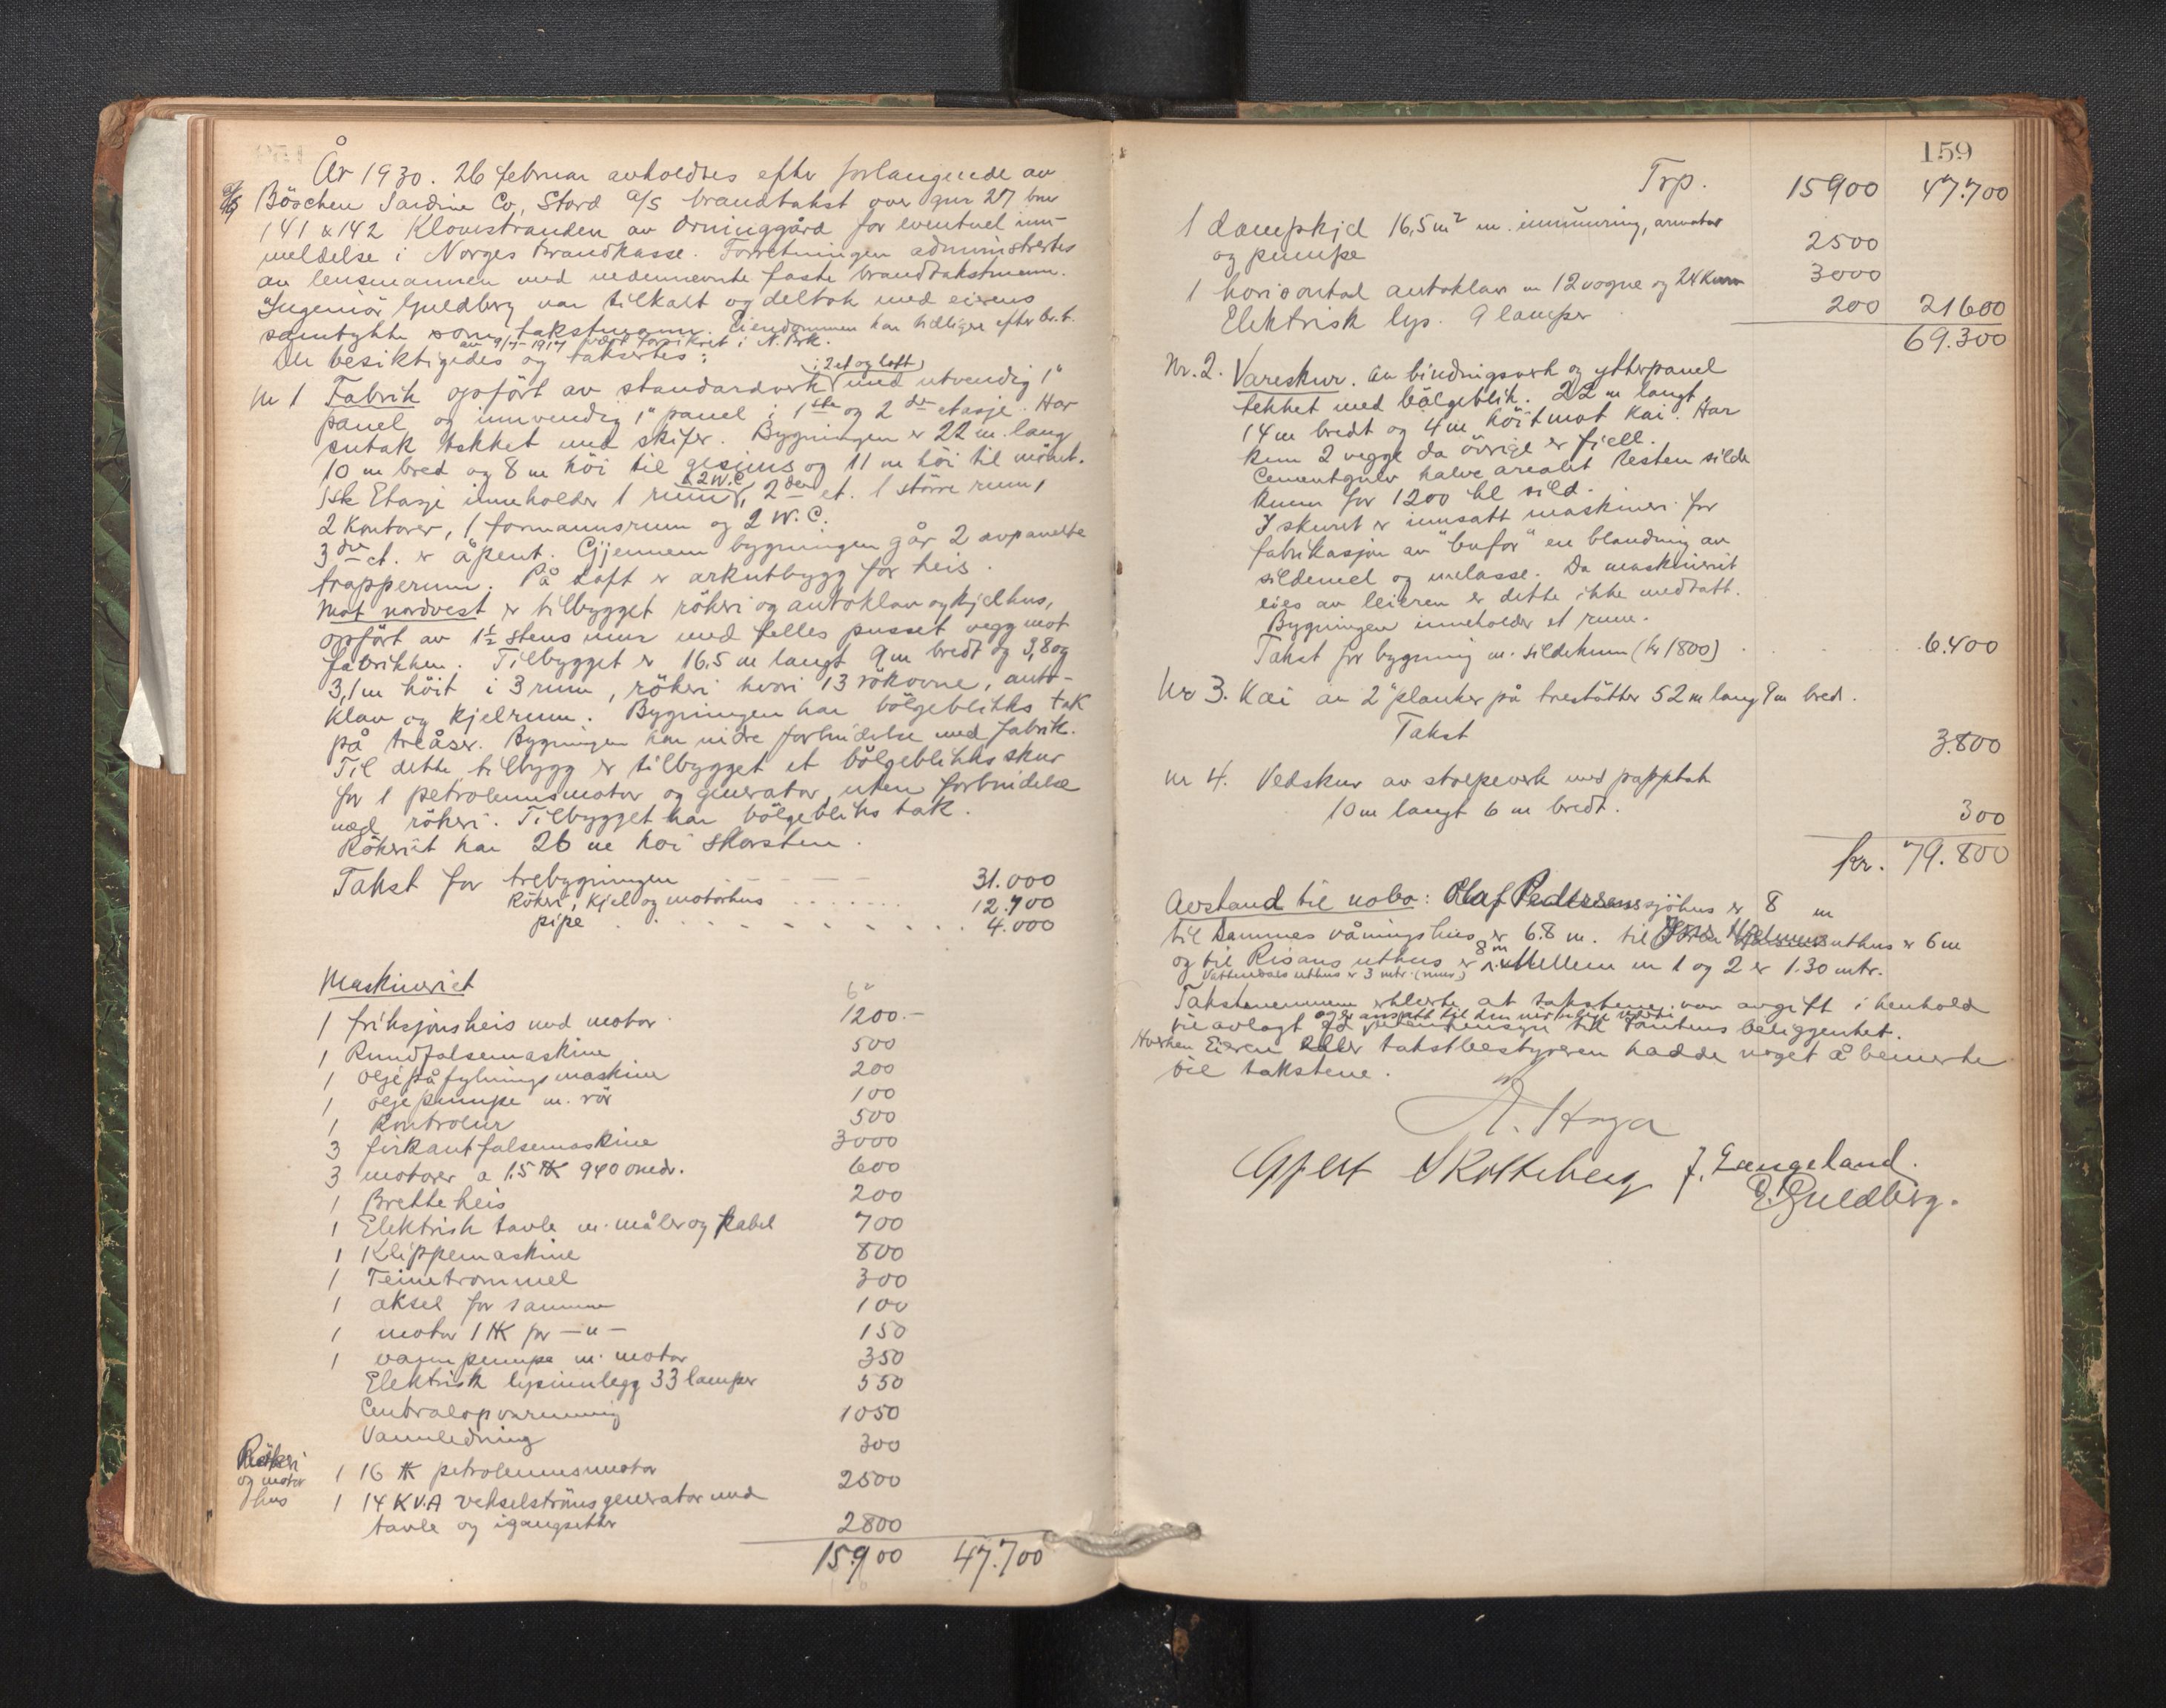 År 1930. 26 februar avholdtes efter forlangende av
Böschen Sardine Co, Stord a/s brandtakst over gnr 27 bnr
141 & 142 Klovestranden av Orninggård for eventuel inn-
meldelse i Norges Brandkasse. Forretningen administrertes
av lensmannen med nedennevnte faste brandtakstmenn.
Ingeniör Guldberg var tilkalt og deltok med eierens
samtykke som takstmann. Eiendommen har tidligere efter br.t.
av 9/7-1917 vært forsikret i N. Brk.
Der besiktigedes og takseertes:
Nr 1 Fabrik opfört av standardverk (i 2 et og loft) med utvendig 1"
panel og innvendig 1" panel i 1ste og 2den etasje. Har
sutak tekket med skifer. Bygningen er 22 m. lang
10 m bred og 8 m höi til gesims og 11 m höi til mönet.
1ste Etasje inneholder 1 rum & 2 W.C, 2den et. 1 större rum,
2 Kontorer, 1 formannsrum og 2 W.C.
3dje et. er åpent. Gjennem bygningen går 2 avpanelte
trapperum. På Loft er arkutbygg for heis.
Mot nordvest er tilbygget rökeri og autoklav og kjelhus,
opfört av 1½ stens mur med felles pusset vegg mot
fabrikken. Tilbygget er 16,5 m langt 9 m bredt og 3,8 og
3,1 m höit i 3 rum, rökeri hvori 13 rökovne, auto-
klav og kjelrum. Bygningen har bölgeblikks tak
på treåser. Bygningen har indre forbindelse med fabrik.
Til dette tilbygg er tilbygget et bölgeblikks skur
for 1 petroleumsmotor og generator uten forbindelse
med rökeri. Tilbygget har bölgebliks tak.
Rökeriet har 26 m höi skorsten.
Takst for trebygningen 31.000
Rökeri, kjel og motorhus 12.700
pipe 4.000
Maskineriet
1 friksjonsheis med motor 1200.-
1 Rundfalsemaskine 500
1 oljepåfylningsmaskine 200
1 oljepumpe m. rör 100
1 Kontrolur 500
3 firkantfalsemaskine 3000
3 motorer a 1.5 HK 940 omdr. 600
1 Bretteheis 200
1 Elektrisk tavle m. måler og kabel 700
1 Klippemaskine 800
1 Teinetrommel 300
1 aksel for samme 100
1 motor 1 HK for -"- 150
1 pumpe m. motor 350
Elektrisk lysinnlegg 33 lamper 550
Centralopvarmning 1050
Vannledning 300
Rökeri
og motor
hus
1 16 HK petroleumsmotor 2500
1 14 KVA vekselströmsgenerator med
tavle og igangsetter 2800
15.900 47.700
159
Trp. 15900 47.700
1 dampkjel 16,5 m² m. innmuring, armatur
og pumpe 2500
1 horisontal autoklav m 12 vogne og 24 3000
Elektrisk lys. 9 lamper 200 21600
69.300
Nr. 2. Vareskur. Av bindingsverk og ytterpanel
tekket med bölgeblik. 22 m langt,
14 m bredt og 4 m höit mot kai. Har
kun 2 vegge da övrige er fjell.
Cementgulv halve arealet Resten silde
kum for 1200 hl sild.
I skuret er innsatt maskineri for
fabrikasjon av "bufor" en blandning av
sildemel og melasse. Da maskineriet
eies av leieren er dette ikke medtatt.
Bygningen inneholder et rum.
Takst for bygning m. sildekum (kr 1800) 6.400
Nr 3. Kai av 2" planker på trestötter 52 m lang 9 m bred.
Takst 3.800
Nr 4. Vedskur av stolpeverk med papptak
10 m langt 6 m bredt. 300
kr. 79.800
Avstand til nabo: Olaf Pedersens sjöhus er 8 m
til sammes våningshus er 6.8 m. til uthus er 6 m
og til Risans uthus er 8 m. Mellem nr 1 og 2 er 1.30 mtr.
uthus er 3 mtr. (mur)
Takstmennene erklærte at takstene var avgitt i henhold
til avlagt ed og er ansatt til den virkelige verdi uten hensyn til tomtens beliggenhet.
Hverken Eieren eller takstbestyreren hadde noget å bemerke
til takstene.
A. Haga
Skotteberg J. Langeland.
E. Guldberg.